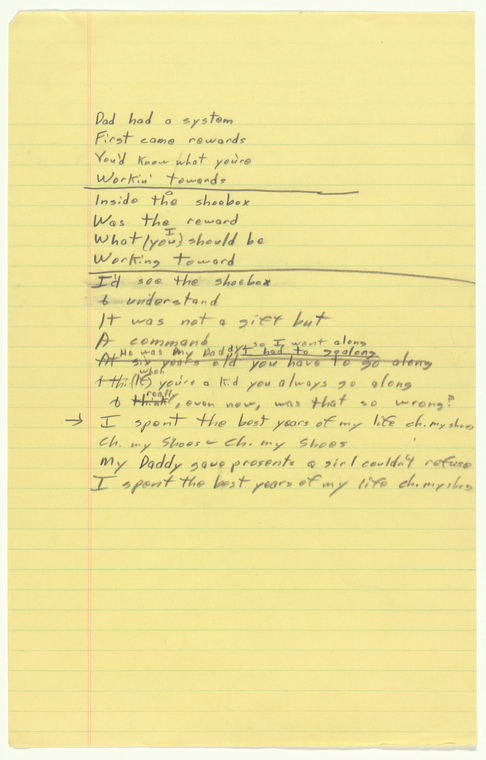 Dad had a system
First come rewards
You'd know what you're
Workin' towards
Inside the shoebox
Was the reward
I
What (you) should be
Working Toward
I'd see the shoebox
& understand
It was not a gift but
A command so I went along
He was my Daddy I had to go along
At six years old you have to go along
when
& thi (If) you're a kid you always go along
really
& think, even now, was that so wrong?
→ I spent the best years of my life ch. my shoes
Ch. my Shoes - Ch. my Shoes
My Daddy gave presents a girl couldn't refuse
I spent the best years of my life ch. my shoes